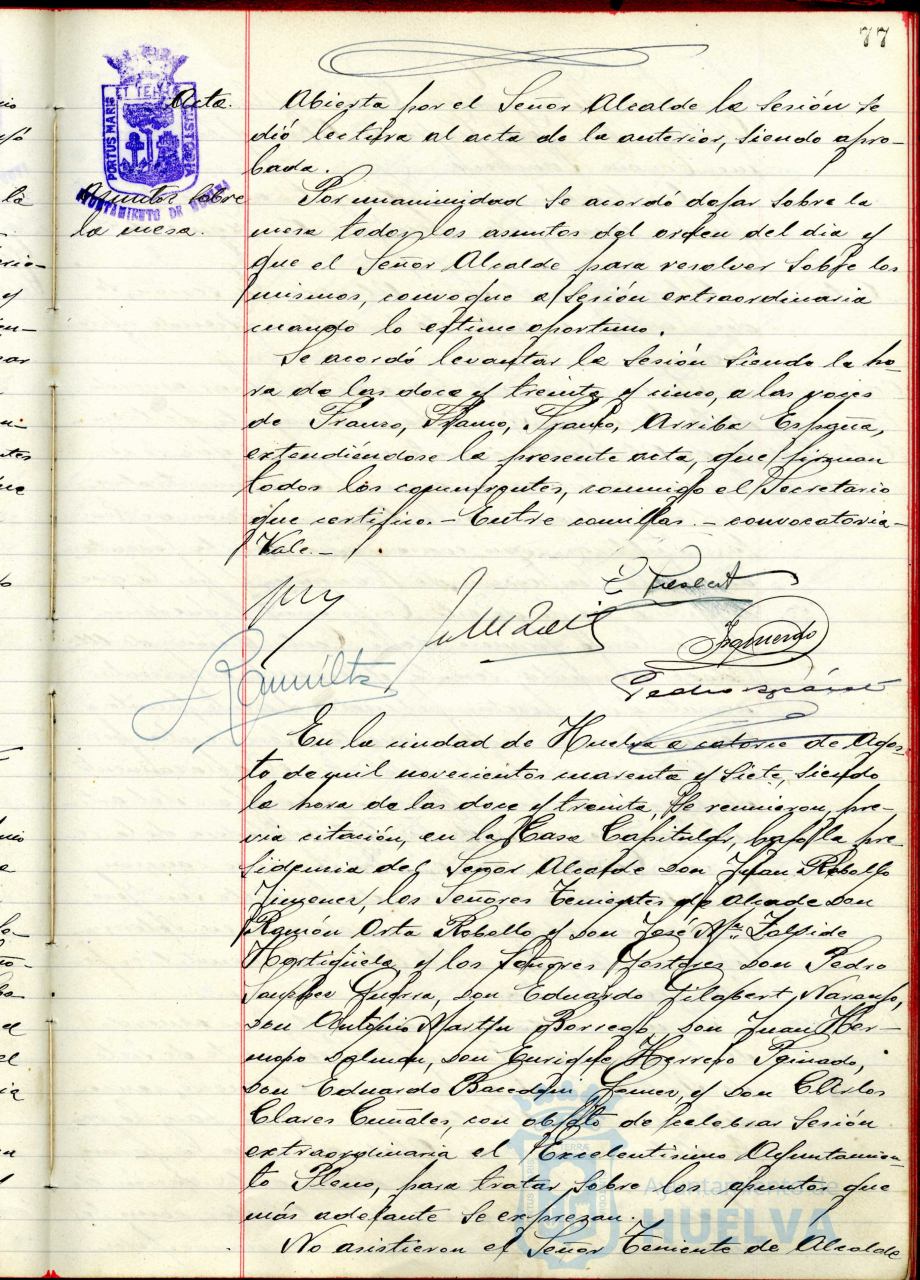 77
Acta.
Abierta por el Señor Alcalde la sesión se
dió lectura al acta de la anterior, siendo apro-
bada.
PORTUS MARIS ET TERRE CUSTODIA
AYUNTAMIENTO DE HUELVA
Asuntos sobre
la mesa.
Por unanimidad se acordó dejar sobre la
mesa todos los asuntos del orden del dia y
que el Señor Alcalde para resolver sobre los
mismos, convoque a sesión extraordinaria
cuando lo estime oportuno.
Se acordó levantar la sesión siendo la ho-
ra de las doce y treinta y cinco, a las voces
de Franco, Franco, Franco, Arriba España,
extendiéndose la presente acta, que firman
todos los concurrentes, conmigo el Secretario
que certifico.- Entre comillas.- convocatoria-
Vale.-
Izquierdo
Pedro
En la ciudad de Huelva a catorce de Agos-
to, de mil novecientos cuarenta y siete, siendo
la hora de las doce y treinta, se reunieron, pre-
via citación, en la Casa Capitular, bajo la pre-
sidencia del Señor Alcalde Don Juan Rebollo
Jimenez, los Señores Tenientes de Alcade Don
Ramón Orta Rebollo y Don José Mª. Zalvide
Hortigüela y los Señores Gestores Don Pedro
Guerra, Don Eduardo Gilabert Naranjo,
Don Antonio Martin Borrego, Don Juan Her-
moso Dolman, Don Enrique Herrero Peinado,
Don Eduardo Gomez, y Don Carlos
Clares Cuñales, con objeto de celebrar sesión
extraordinaria el Excelentisimo Ayuntamien-
to Pleno, para tratar sobre los asuntos que
más adelante se expresan.
No asistieron el Señor Teniente de Alcalde
Ayuntamiento de
HUELVA